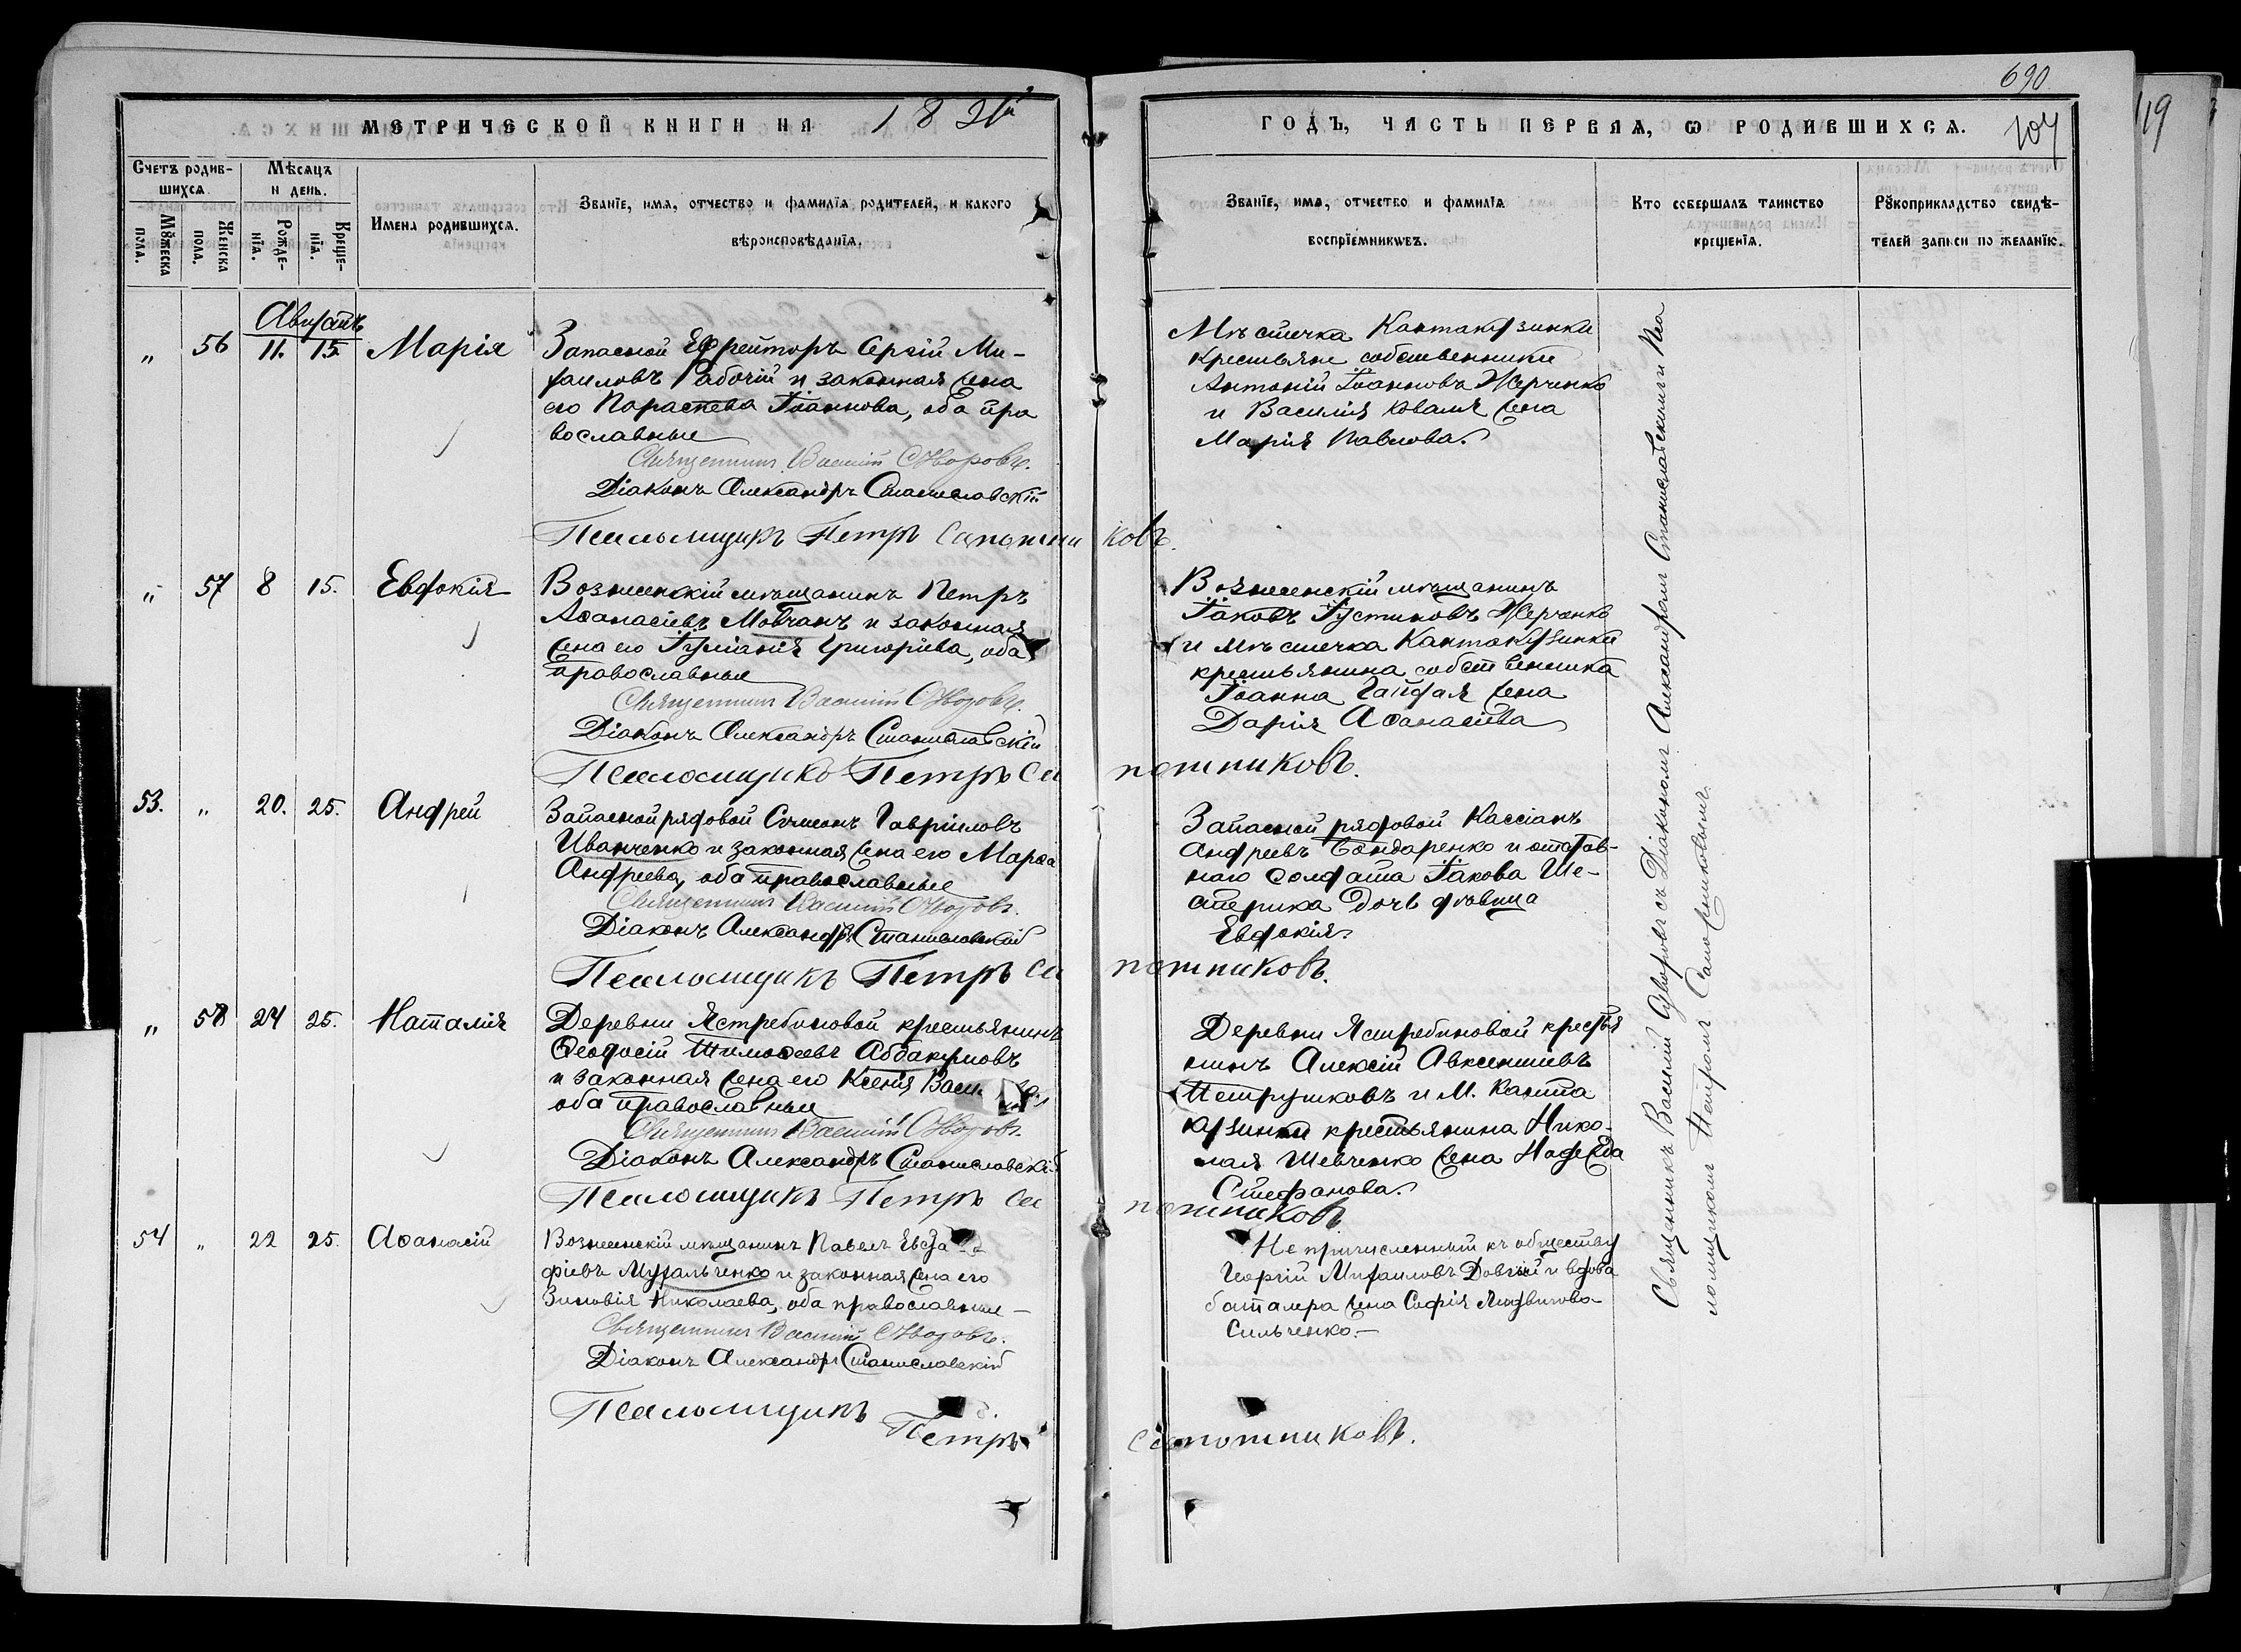 690
МЕТРИЧЕСКОЙ КНИГИ НА 189
ГОДЪ, ЧАСТЬ ПЕРВАЯ, Ѡ РОДИВШИХСЯ.
104
119
Счетъ родив-
шихся.
Мѣсяцъ
и день.
Мꙋжеска
пола.
Женска
пола.
Рожде-
нїя.
Креще-
нїя.
Имена родившихся.
Званїе, имя, отчество и фамилїя родителей, и какого
вѣроисповѣданїя.
Званїе, имя, отчество и фамилїя
воспрїемникѡвъ.
Кто совершалъ таинство
крещенїя.
Рꙋкоприкладство свидѣ-
телей записи по желанїю.
Августъ
„ 56 11. 15. Марія
Запасной Ефрейторъ Сергій Ми-
хаиловъ Рабочій и законная жена
его Параскева Іоаннова, оба пра
вославные
Священникъ Василій Суворовъ.
Діаконъ Александръ Станиславскій
Псаломщикъ Петръ Сапожниковъ.
Мѣстечка Кантакузинки
крестьяне собственники
Антоній Іоанновъ Жерченко
и Василія Коваля жена
Марія Павлова.
„ 57 8 15. Евдокія
Вознесенскій мѣщанинъ Петръ
Аѳанасіевъ Мовчанъ и законная
жена его Іуліанія Григоріева, оба
православные
Священникъ Василій Суворовъ.
Діаконъ Александръ Станиславскій
Псаломщикъ Петръ Сапожниковъ.
Вознесенскій мѣщанинъ
Іаковъ Іустиновъ Жерченко
и мѣстечка Кантакузинки
крестьянина собственника
Іоанна Гайдая жена
Дарія Аѳанасіева
53. „ 20. 25. Андрей
Запасной рядовой Симеонъ Гавріиловъ
Иванченко и законная жена его Марѳа
Андреева, оба православные
Священникъ Василій Суворовъ.
Діаконъ Александръ Станиславскій
Псаломщикъ Петръ Сапожниковъ.
Запасной рядовой Кассіанъ
Андреевъ Бондаренко и отстав-
наго солдата Іакова Ше-
стерика дочь дѣвица
Евдокія.
„ 58 24 25. Наталія
Деревни Ястребиновой крестьянинъ
Ѳеодосій Тимоѳеевъ Аббакумовъ
и законная жена его Ксенія
оба православные
Священникъ Василій Суворовъ.
Діаконъ Александръ Станиславскій
Псаломщикъ Петръ Сапожниковъ.
Деревни Ястребиновой крестья
нинъ Алексій Авксентіевъ
Петрушковъ и М. Канта
кузинки крестьянина Нико-
лая Шевченко жена Надежда
Стефанова.
54 „ 22 25. Аѳанасій
Вознесенскій мѣщанинъ Павелъ
фіевъ Мухальченко и законная жена его
Зиновія Николаева, оба православные
Священникъ Василій Суворовъ.
Діаконъ Александръ Станиславскій
Псаломщикъ
Петръ Сапожниковъ.
Не причисленный къ обществу
Георгій Михаиловъ Довгій и вдова
баталера жена Софія
Сильченко.
Священникъ Василій Суворовъ съ Діакономъ Александромъ Станиславскимъ и Пса
ломщикомъ Петромъ Сапожниковымъ.